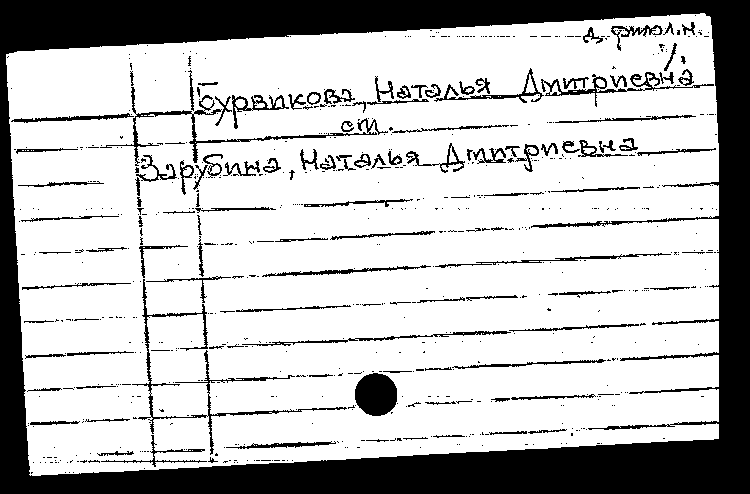 д. филол. н.
Бурвикова, Наталья Дмитриевна
ст.
Зарубина, Наталья Дмитриевна